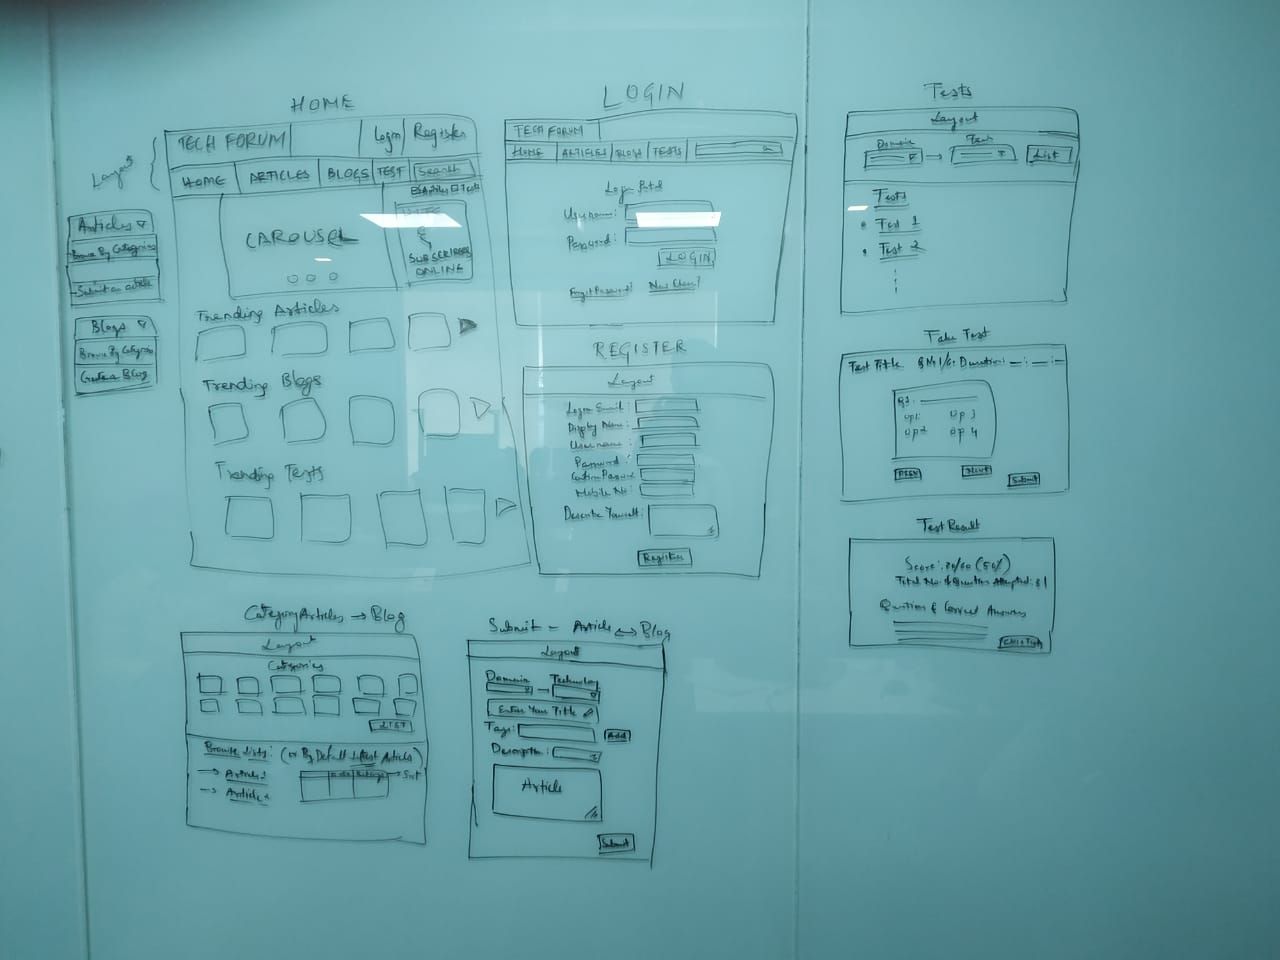 HOME
Layout
TECH FORUM Login Register
HOME ARTICLES BLOGS TEST Search
Articles Tests
CAROUSEL
SUBSCRIBERS
ONLINE
Articles
Browse By Categories
Submit an article
Blogs
Browse By Categories
Create a Blog
Trending Articles
Trending Blogs
Trending Tests
LOGIN
TECH FORUM
HOME ARTICLES BLOGS TESTS
Login Portal
Username:
Password:
LOGIN
Forgot Password? New User?
REGISTER
Layout
Login Email:
Display Name:
Username:
Password:
Confirm Password
Mobile No:
Describe Yourself:
Register
Tests
Layout
Domain → Tech List
Tests
• Test 1
• Test 2
Take Test
Test Title Duration:
Q1.
Op1 Op 3
Op2 Op 4
PREV NEXT
Submit
Test Result
Score: 30/60 (50%)
Total No. of Questions Attempted: 31
Question & Correct Answers
Category Articles → Blog
Layout
Categories
LIST
Browse Lists: (or By Default Latest Articles)
→ Article 1 → Sort
→ Article 2
Submit - Article ↔ Blog
Layout
Domain → Technology
Enter Your Title
Tags: Add
Description:
Article
Submit